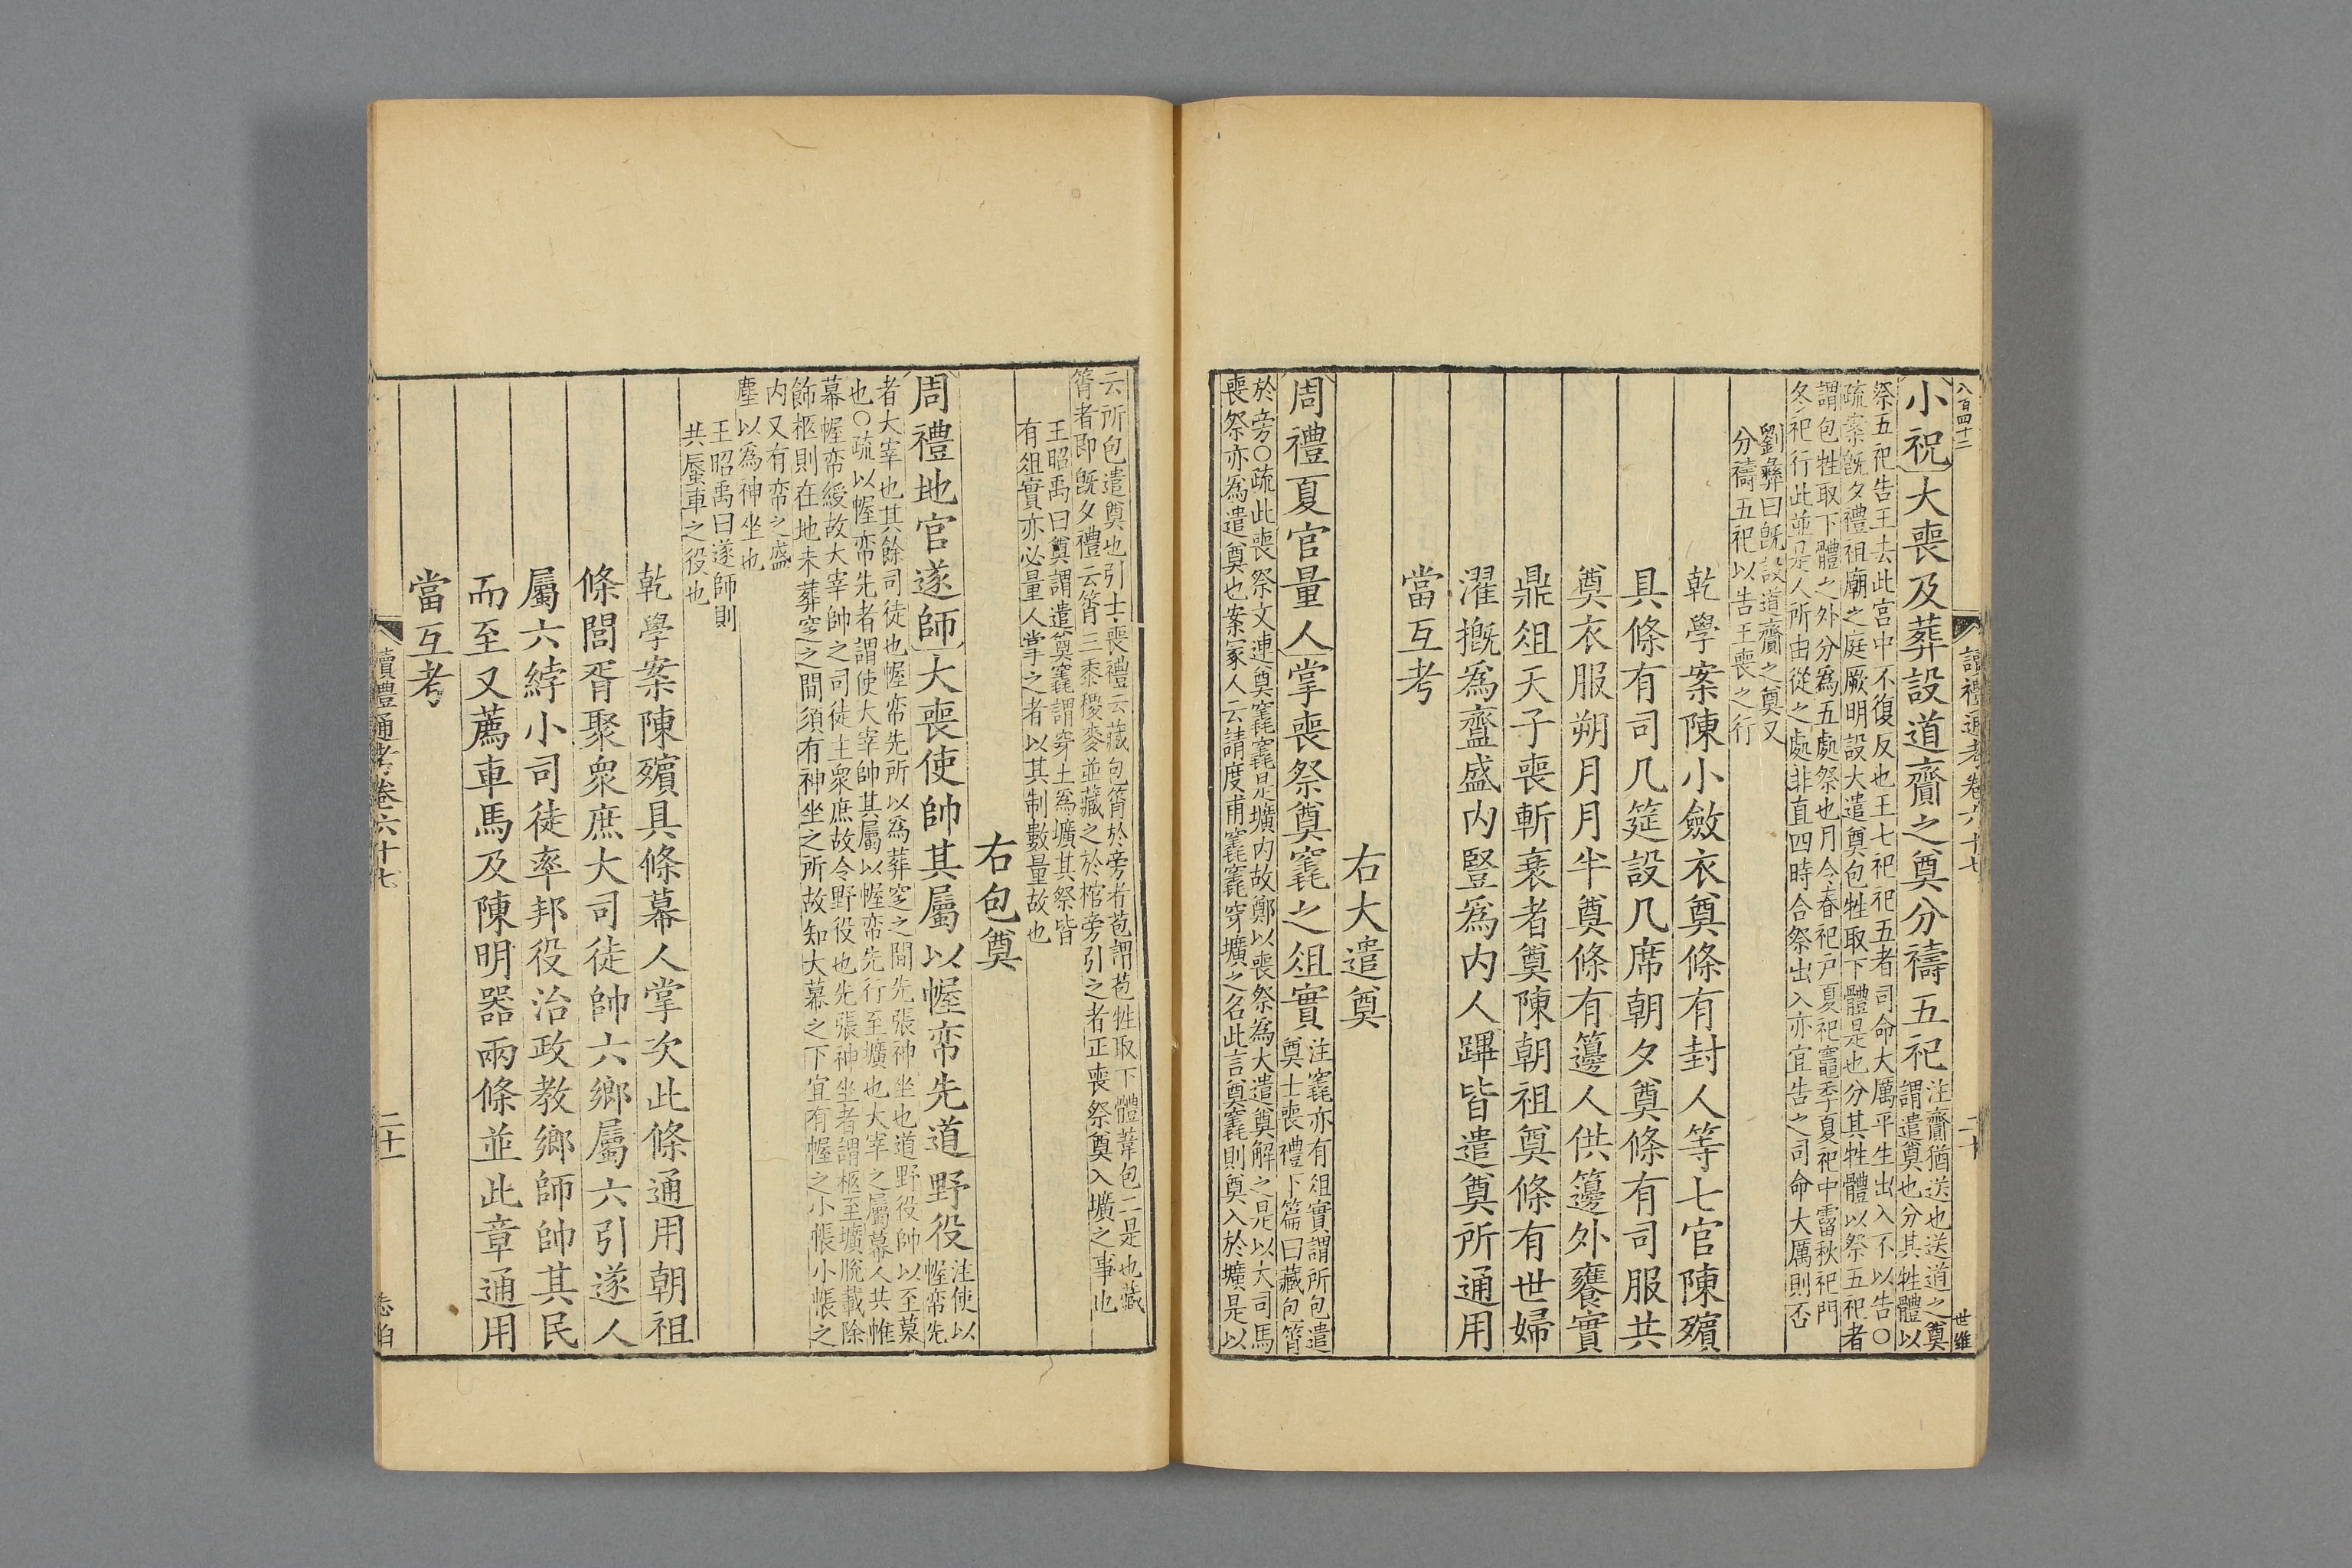 八百四十二
讀禮通考卷六十七
二十
世維
小祝大喪及葬設道齎之奠分禱五祀
注齎猶送也送道之奠
謂遣奠也分其牲體以
祭五祀告王去此宮中不復反也王七祀祀五者司命大厲平生出入不以告〇
疏案旣夕禮祖廟之庭厥明設大遣奠包牲取下體是也分其牲體以祭五祀者
謂包牲取下體之外分爲五處祭也月令春祀戸夏祀竈季夏祀中霤秋祀門
冬祀行此並是人所由從之處非直四時合祭出入亦宜告之司命大厲則否
劉彝曰旣設道齎之奠又
分禱五祀以告王喪之行
乾學案陳小斂衣奠條有封人等七官陳殯
具條有司几筵設几席朝夕奠條有司服共
奠衣服朔月月半奠條有籩人供籩外饔實
鼎俎天子喪斬衰者奠陳朝祖奠條有世婦
濯摡爲齍盛内豎爲内人蹕皆遣奠所通用
當互考
右大遣奠
周禮夏官量人掌喪祭奠竁之俎實
注竁亦有俎實謂所包遣
奠士喪禮下篇曰藏包筲
於旁〇疏此喪祭文連奠竁竁是壙内故鄭以喪祭爲大遣奠解之是以大司馬
喪祭亦爲遣奠也案冢人云請度甫竁竁穿壙之名此言奠竁則奠入於壙是以
云所包遣奠也引士喪禮云藏包筲於旁者苞謂苞牲取下體葦包二是也藏
筲者即旣夕禮云筲三黍稷麥並藏之於棺旁引之者正喪祭奠入壙之事也
王昭禹曰奠謂遣奠竁謂穿土爲壙其祭皆
有俎實亦必量人掌之者以其制數量故也
右包奠
周禮地官遂師大喪使帥其屬以幄帟先道野役
注使以
幄帟先
者大宰也其餘司徒也幄帟先所以爲葬窆之間先張神坐也道野役帥以至墓
也〇疏以幄帟先者謂使大宰帥其屬以幄帟先行至壙也大宰之屬幕人共帷
幕幄帟綬故大宰帥之司徒主衆庶故令野役也先張神坐者謂柩至壙脫載除
飾柩則在地未葬窆之間須有神坐之所故知大幕之下宜有幄之小帳小帳之
内又有帟之盛
塵以爲神坐也
王昭禹曰遂師則
共蜃車之役也
乾學案陳殯具條幕人掌次此條通用朝祖
條閭胥聚衆庶大司徒帥六鄉屬六引遂人
屬六綍小司徒率邦役治政教鄉師帥其民
而至又薦車馬及陳明器兩條並此章通用
當互考
讀禮通考卷六十七
二十一